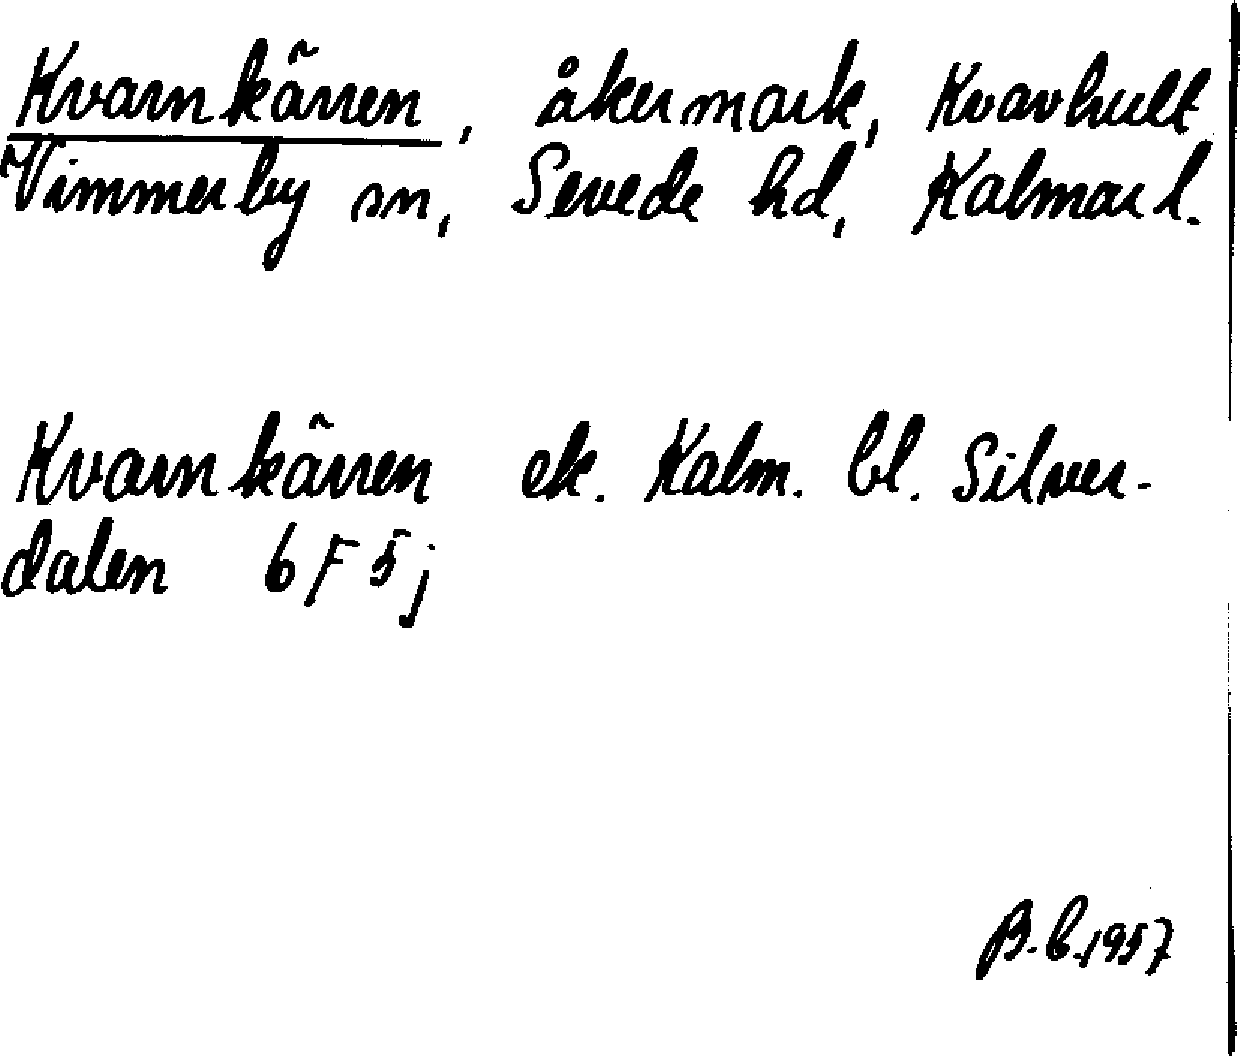 Kvarnkärren, åkermark, Kvavhult
Vimmerby sn, Sevede hd, Kalmar l.
Kvarnkärren ek. Kalm. bl. Silver-
dalen 6F5j
B.C.1957